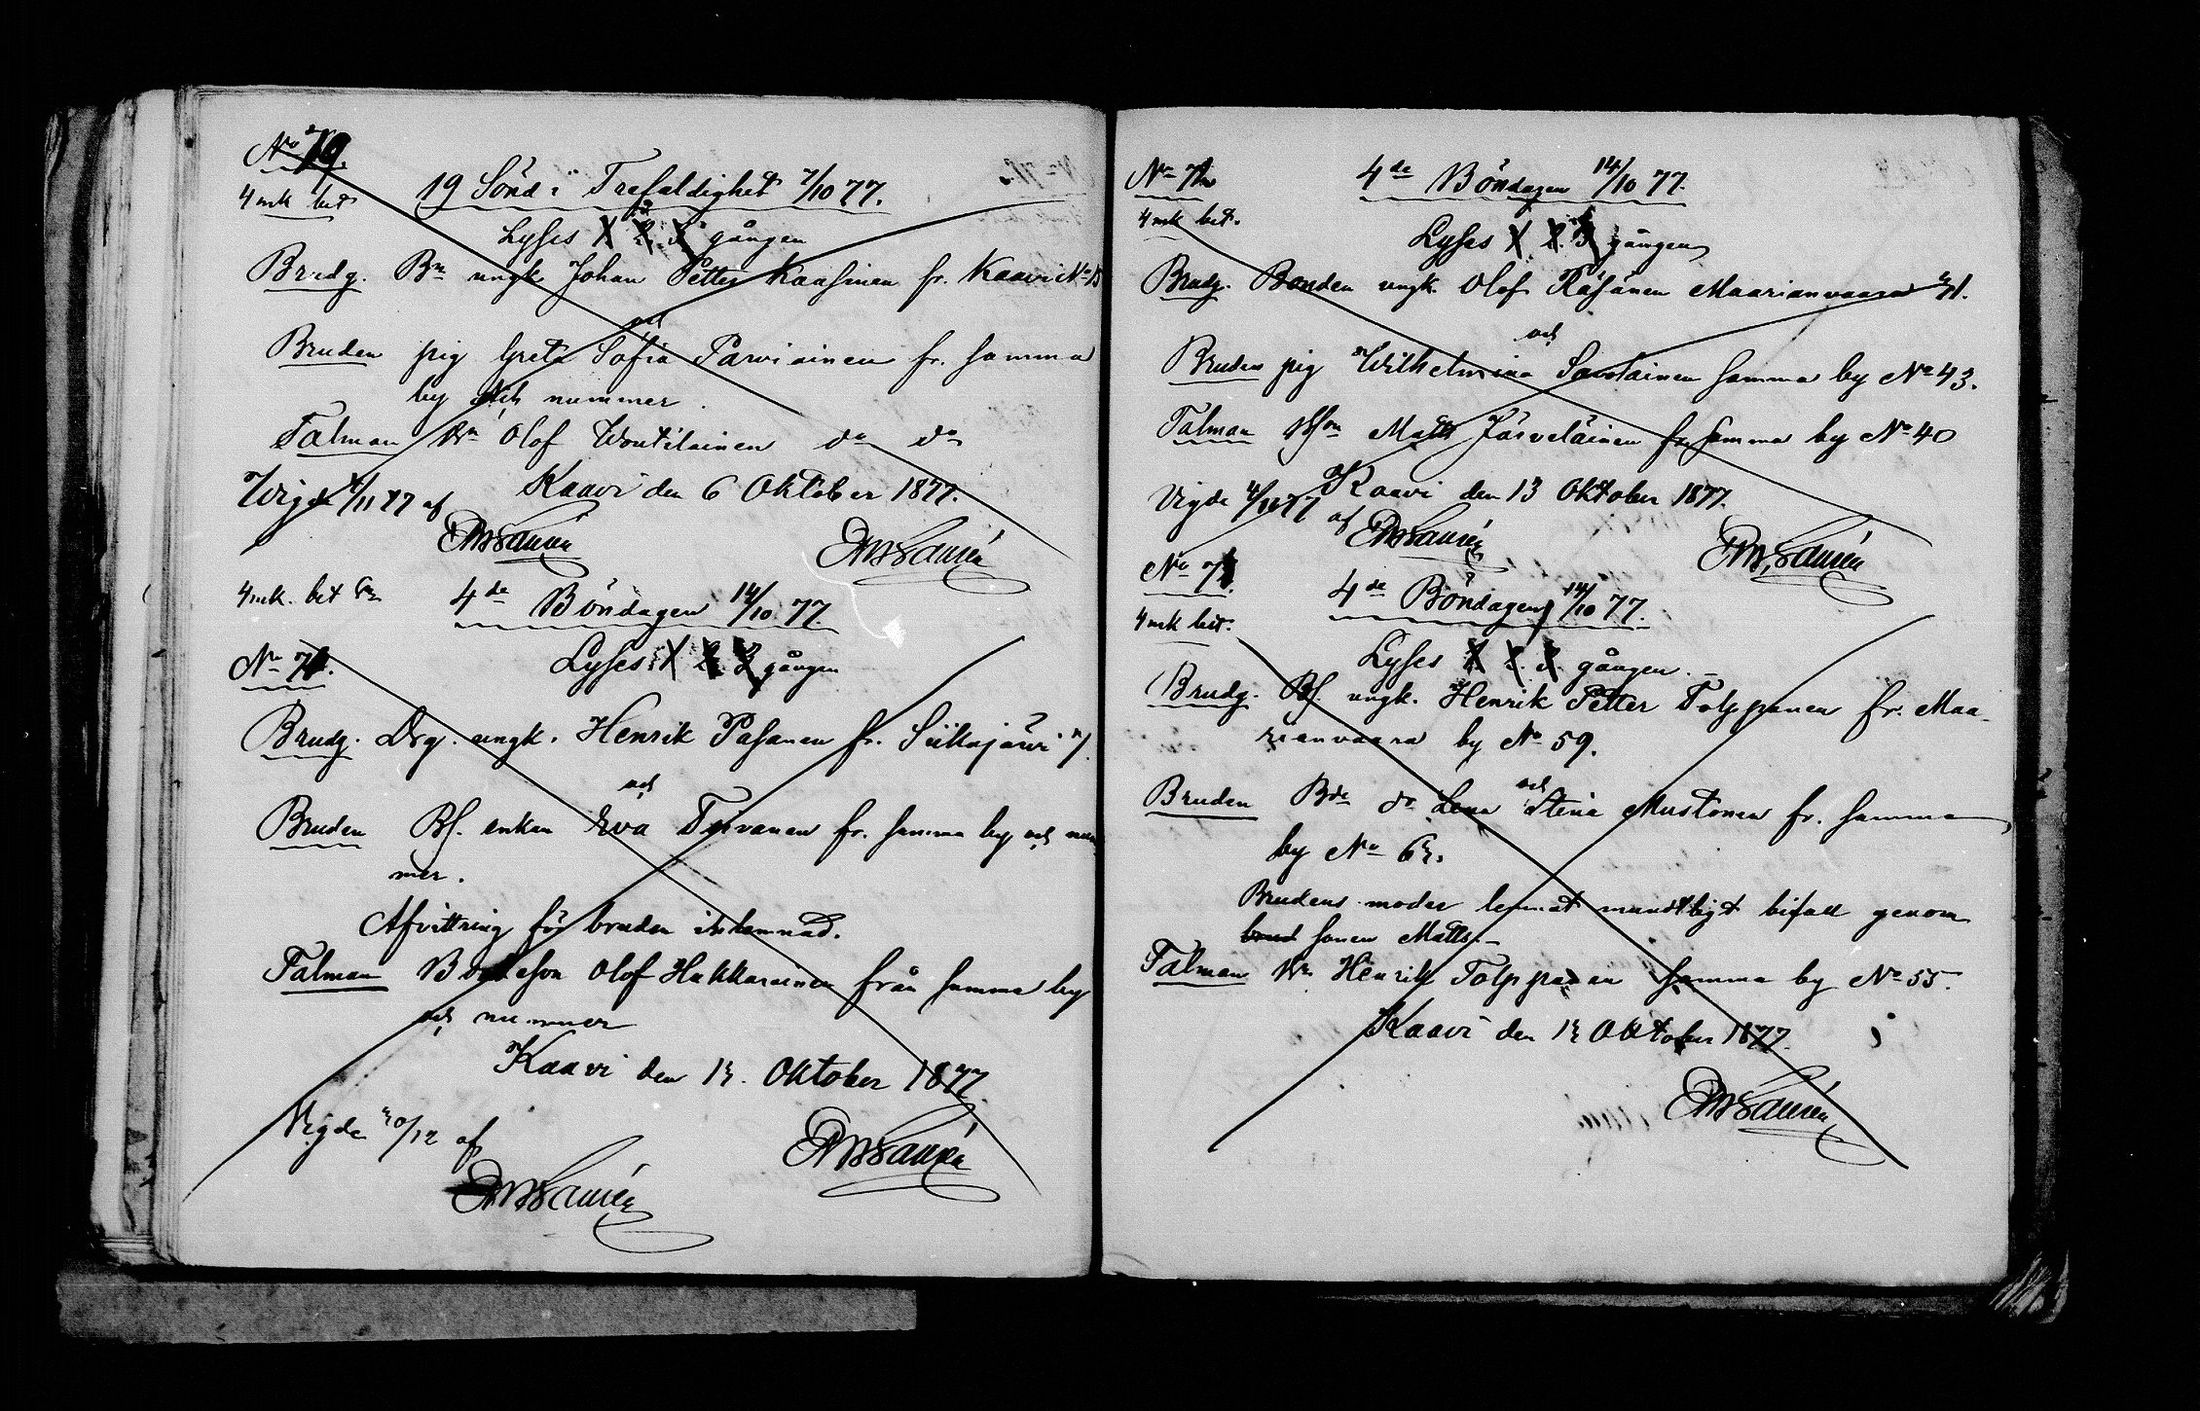 No 70.
4 mk bet
19 Sönd i Trefaldighet 7/10 77.
Lyses 1 2 3 gången
Brudg. Bn ungk. Johan Petter Kaasinen fr. Kaavi No 13
och
Bruden pig Greta Sofia Parviainen fr. samma
by och nummer.
Talman Bn Olof Woutilainen do do
Kaavi den 6 Oktober 1877.
Wigde 4/11 77 af
4 mk. bet
4de Böndagen 14/10 77.
No 71.
Lyses 1 2 3 gången
Brudg. Drg. ungk. Henrik Pasanen fr. Siikajärvi
och
Bruden Bf. enkan Eva Turvanen fr. samma by och num
mer.
Afvittring för bruden inlemnad.
Talman Bondeson Olof Hakkarainen från samma by
och nummer
Kaavi den 12. Oktober 1877
Vigde 20/12 af
No 72
4 mk bet.
4de Böndagen 14/10 77.
Lyses 1 2 3 gången
Brudg. Bonden ungk. Olof Räsänen Maarianvaara
och
Bruden pig Wilhelmina Savolainen samma by No 43.
Talman Matts Järveläinen fr samma by No 40
Kaavi den 13 Oktober 1877.
Vigde 4/11 77 af
No 73.
4 mk bet.
4de Böndagen 14/10 77.
Lyses 1 2 3 gången.
Brudg. Bf. ungk. Henrik Petter Tolppanen fr. Maa-
rianvaara by No 59.
och
Bruden Bdr dr Lena Stina Mustonen fr. samma
by No 62.
Brudens moder lemnat mundtligt bifall genom
brud sonen Matts.
Talman Bn Henrik Tolppanen samma by No 55.
Kaavi den 12 Oktober 1877.